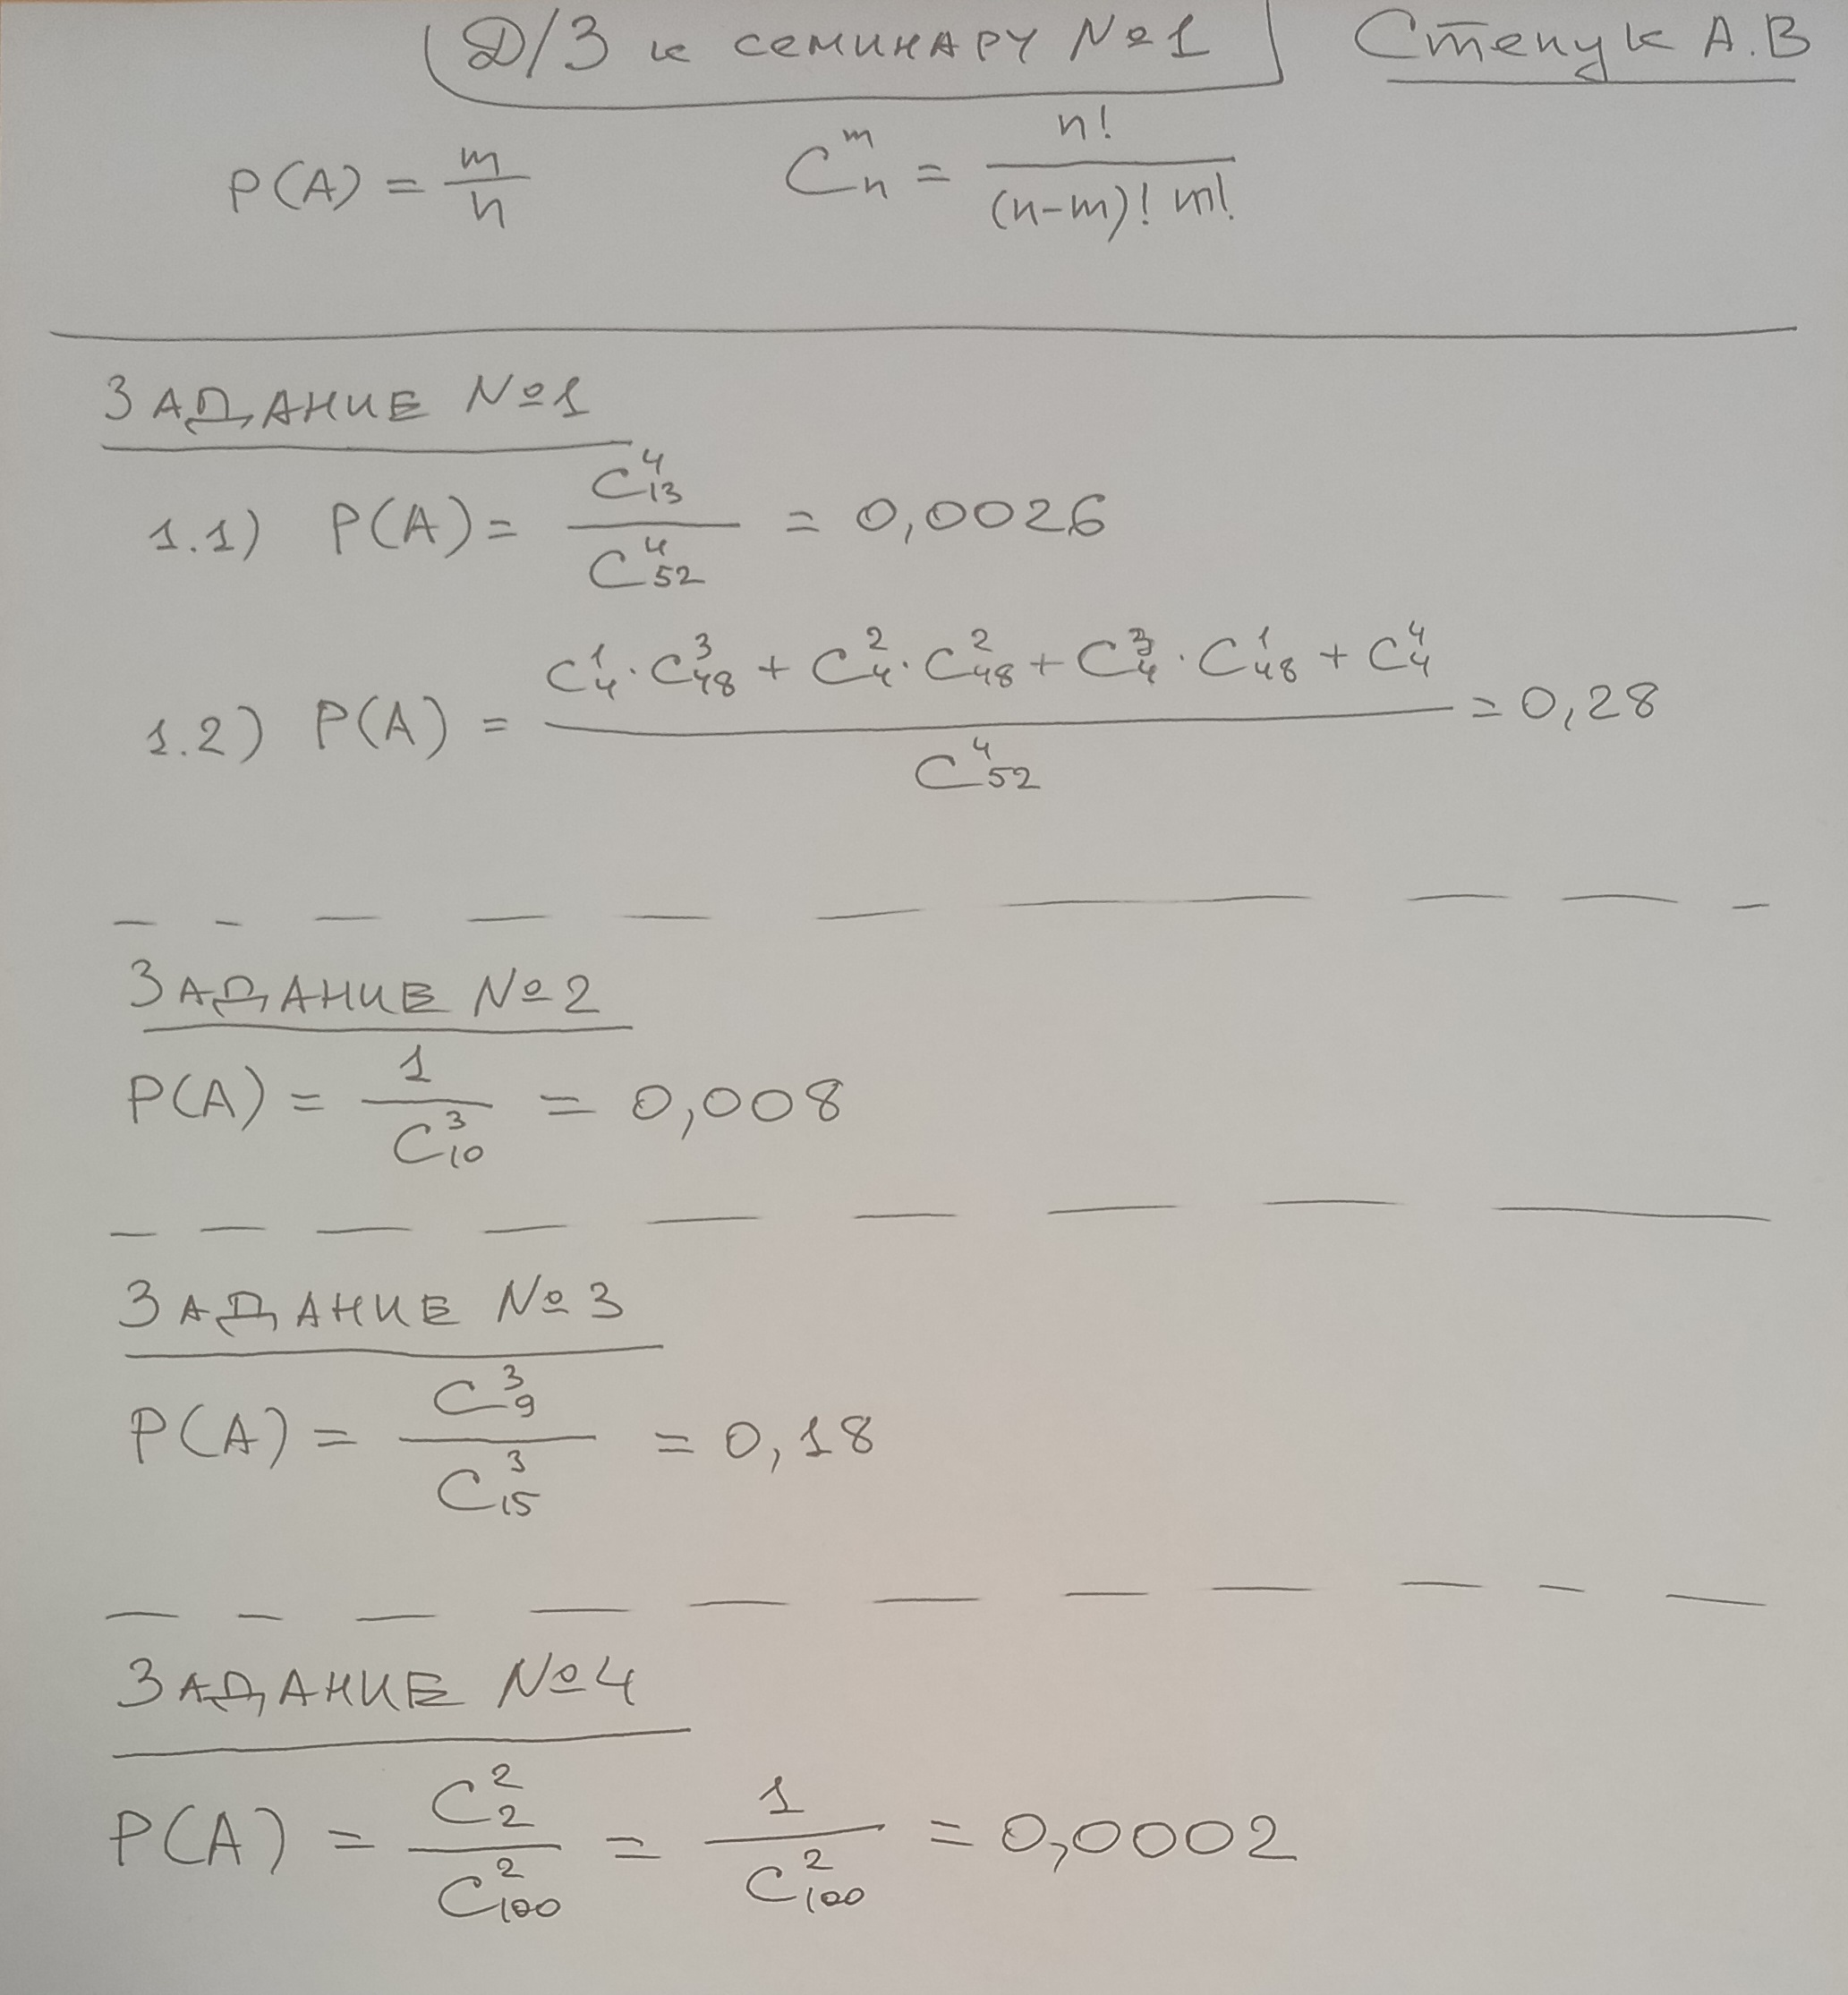 Д/З к семинару №1 Степук А.В
P(A) = m/n C_n^m = n!/((n-m)! m!)
ЗАДАНИЕ №1
1.1) P(A) = C_13^4 / C_52^4 = 0,0026
1.2) P(A) = (C_4^1 · C_48^3 + C_4^2 · C_48^2 + C_4^3 · C_48^1 + C_4^4) / C_52^4 = 0,28
ЗАДАНИЕ №2
P(A) = 1 / C_10^3 = 0,008
ЗАДАНИЕ №3
P(A) = C_9^3 / C_15^3 = 0,18
ЗАДАНИЕ №4
P(A) = C_2^2 / C_100^2 = 1 / C_100^2 = 0,0002